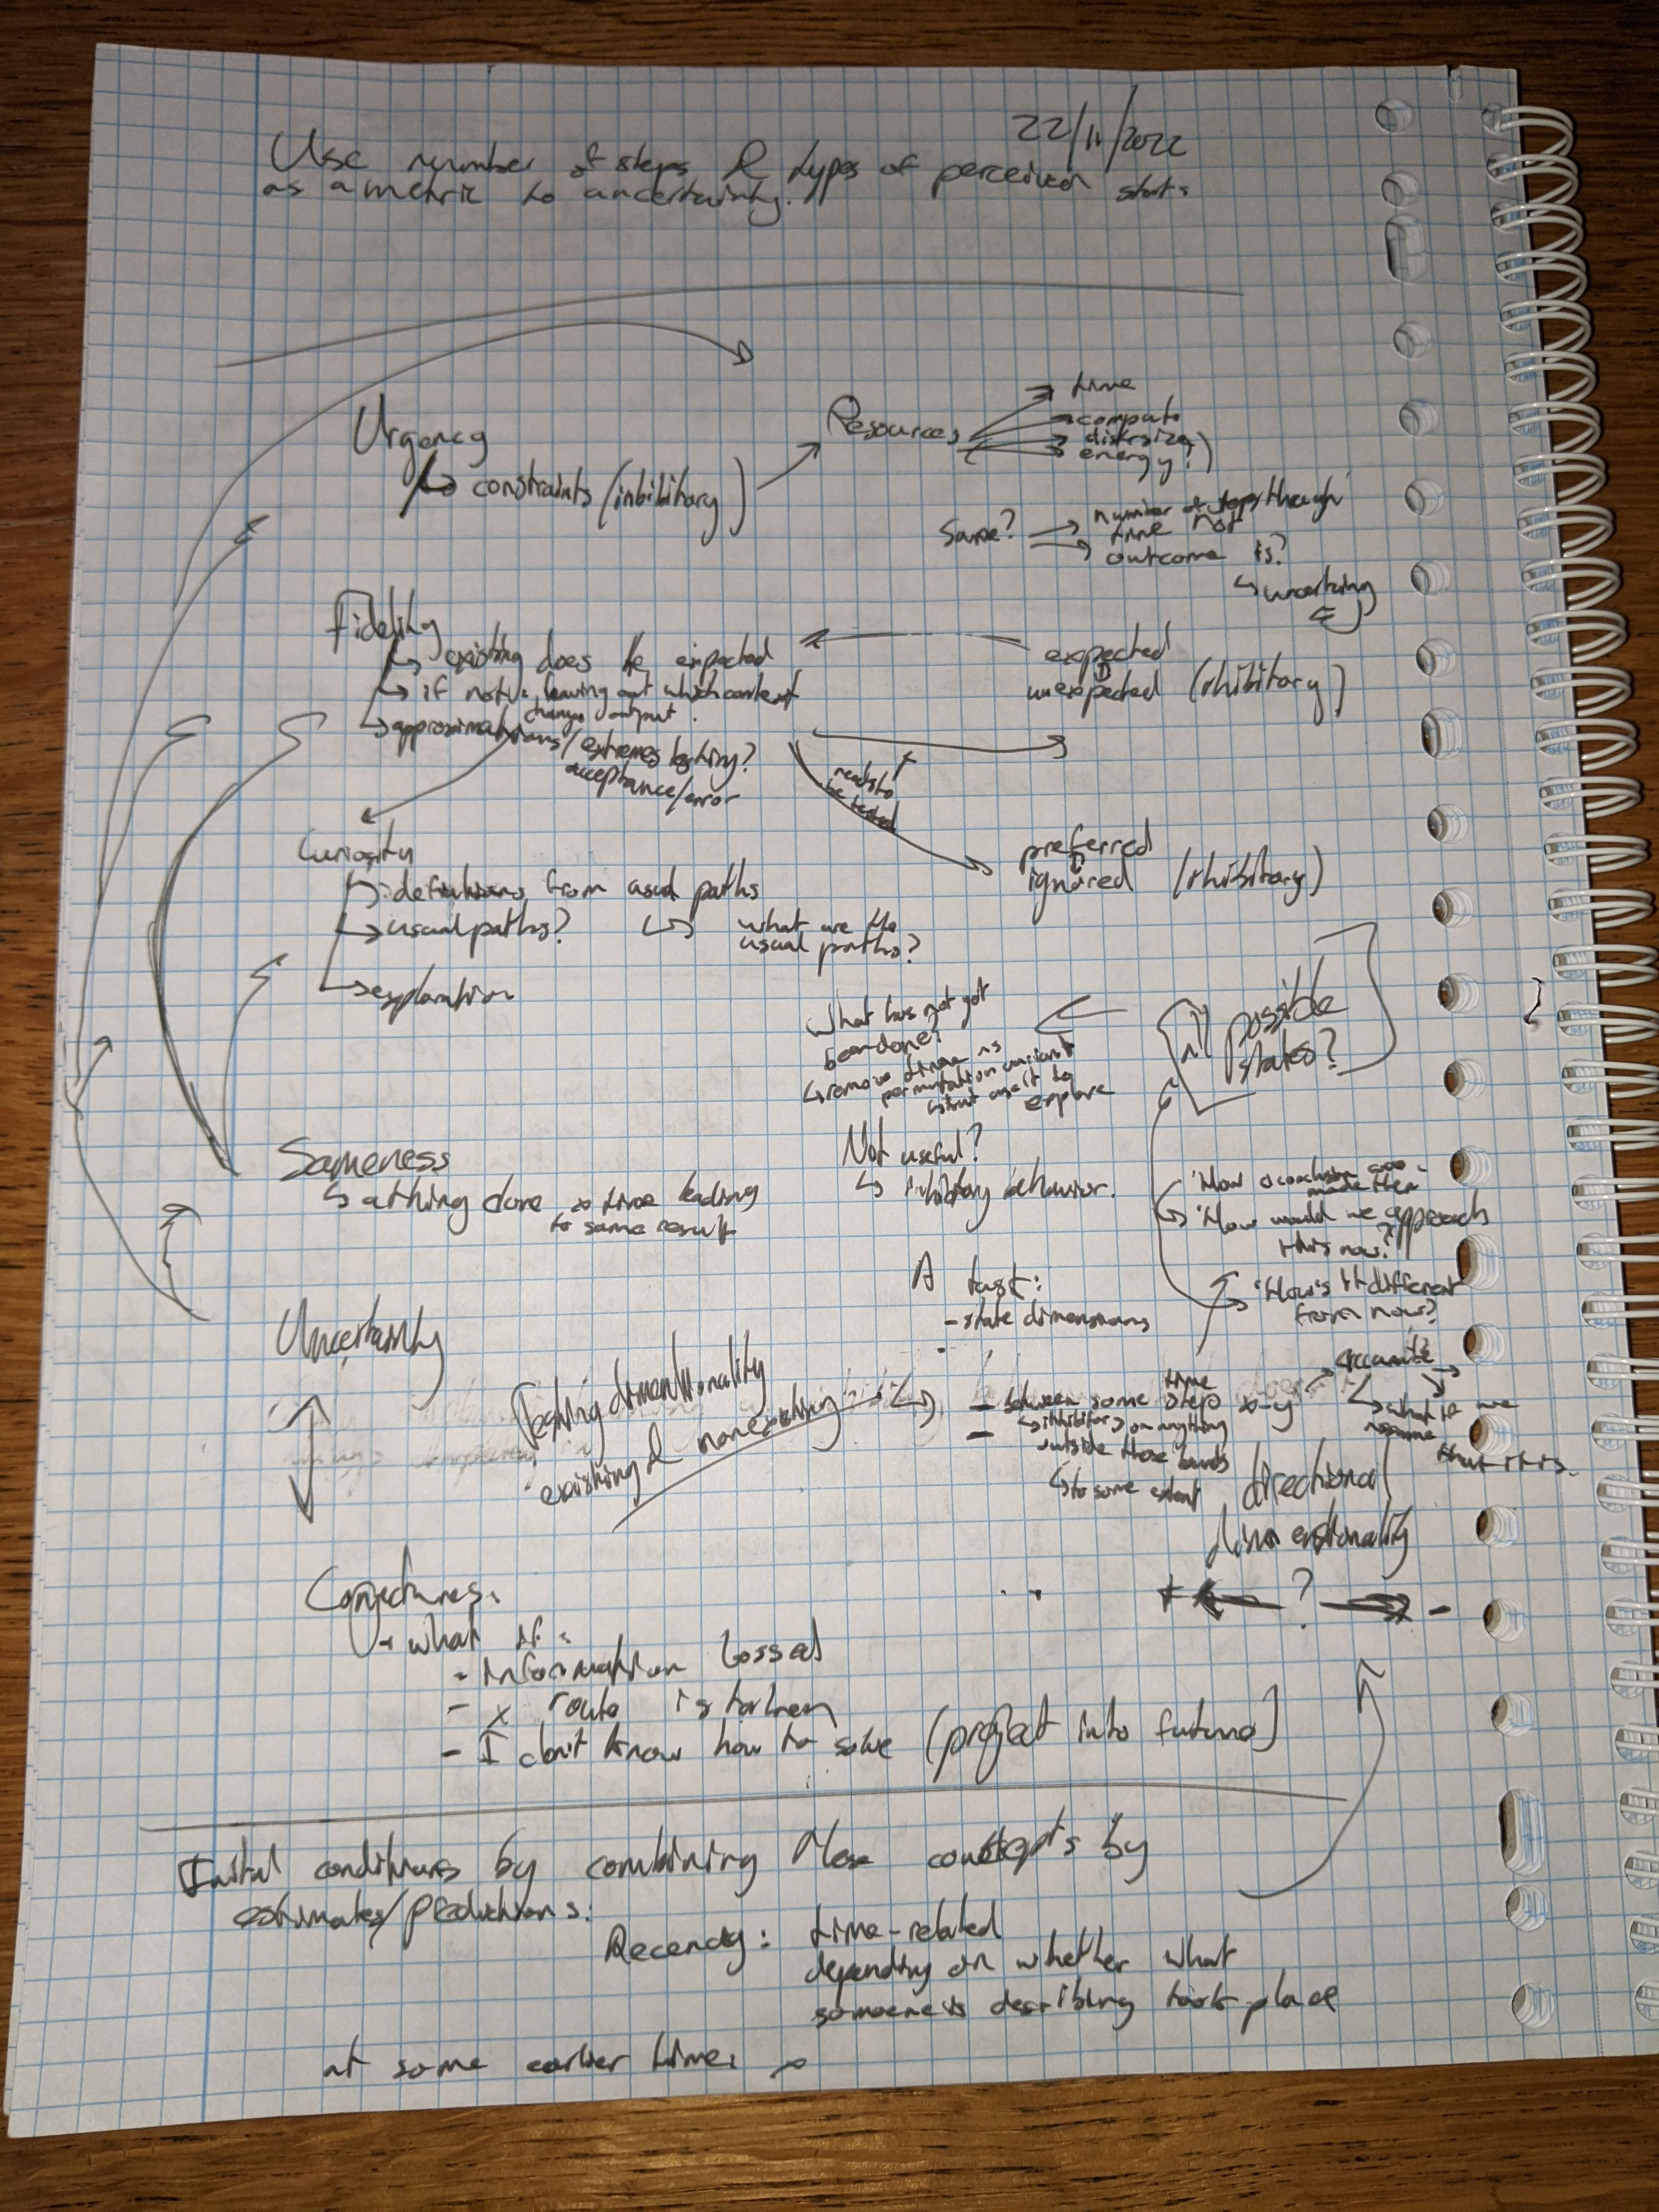 22/11/2022
Use number of steps & types of perceived starts
as a metric to uncertainty.
Urgency
constraints (inhibitory)
Resources
time
compute
energy?)
Same?
number of steps through
time not
outcome is?
Fidelity
existing does be expected
if not, leaving out which context
changes output.
approximations/extremes testing?
acceptance/error
expected
unexpected (inhibitory)
needs to
be tested
preferred
ignored (inhibitory)
Curiosity
from usual paths
usual paths?
what are the
usual paths?
exploration
What has not got
been done?
remove time as
permutation variant
but use it to
explore
All possible
states?
Sameness
a thing done in time leading
to same result
Not useful?
inhibitory behavior.
"How conclusion
made then
"How would we approach
this now?
"How's it different
from now?
A task:
- state dimensions
Uncertainty
Testing dimentionality
existing & nonexisting
- between some time steps x-y
inhibitory on anything
outside those bands
to some extent
-
accurate?
what if we
assume
that it is.
directional
dimensionality
+ ? -
Conjectures:
- what if:
- information loss at
- x route is taken
- I don't know how to solve (project into future)
Initial conditions by combining these concepts by
estimates/predictions:
Recency: time-related
depending on whether what
someone is describing took place
at some earlier time: